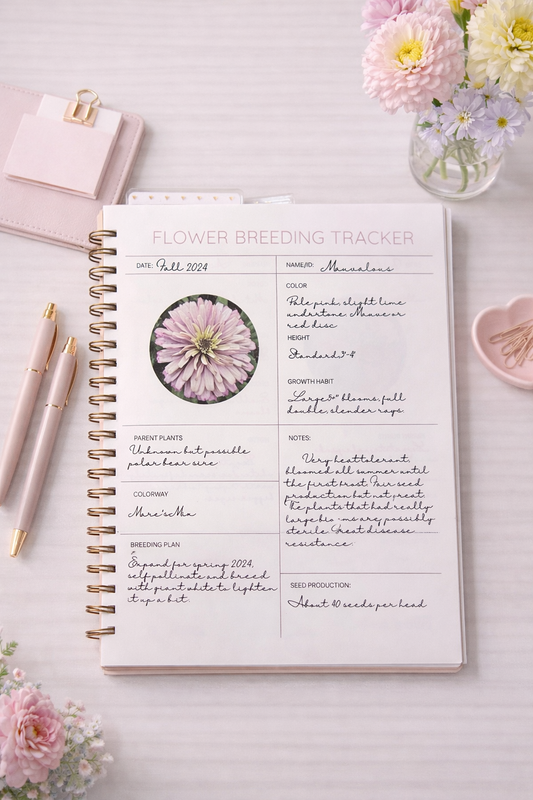 FLOWER BREEDING TRACKER
DATE: Fall 2024
NAME/ID: Mauvalous
COLOR
Pale pink, slight lime
undertone. Mauve or
red disc
HEIGHT
Standard, 3'-4'
GROWTH HABIT
Large 5" blooms, full
double, slender rays.
PARENT PLANTS
Unknown but possible
polar bear sire
COLORWAY
BREEDING PLAN
Expand for spring 2024,
self pollinate and breed
with giant white to lighten
it up a bit.
NOTES:
Very heat tolerant,
bloomed all summer until
the first frost. Fair seed
production but not great.
The plants that had really
large are possibly
sterile. Great disease
resistance.
SEED PRODUCTION:
About 40 seeds per head